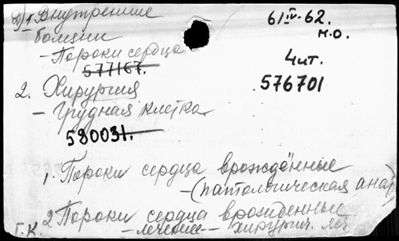 1. Внутренние
болезни
- Пороки сердца
577167.
61 IV-62.
М.О.
4 шт.
576701
2. Хирургия
- Грудная клетка
580031.
1. Пороки сердца врождённые
- (патологическая анат
2 Пороки сердца врожденные
- лечение - хирургич.
Г.К.